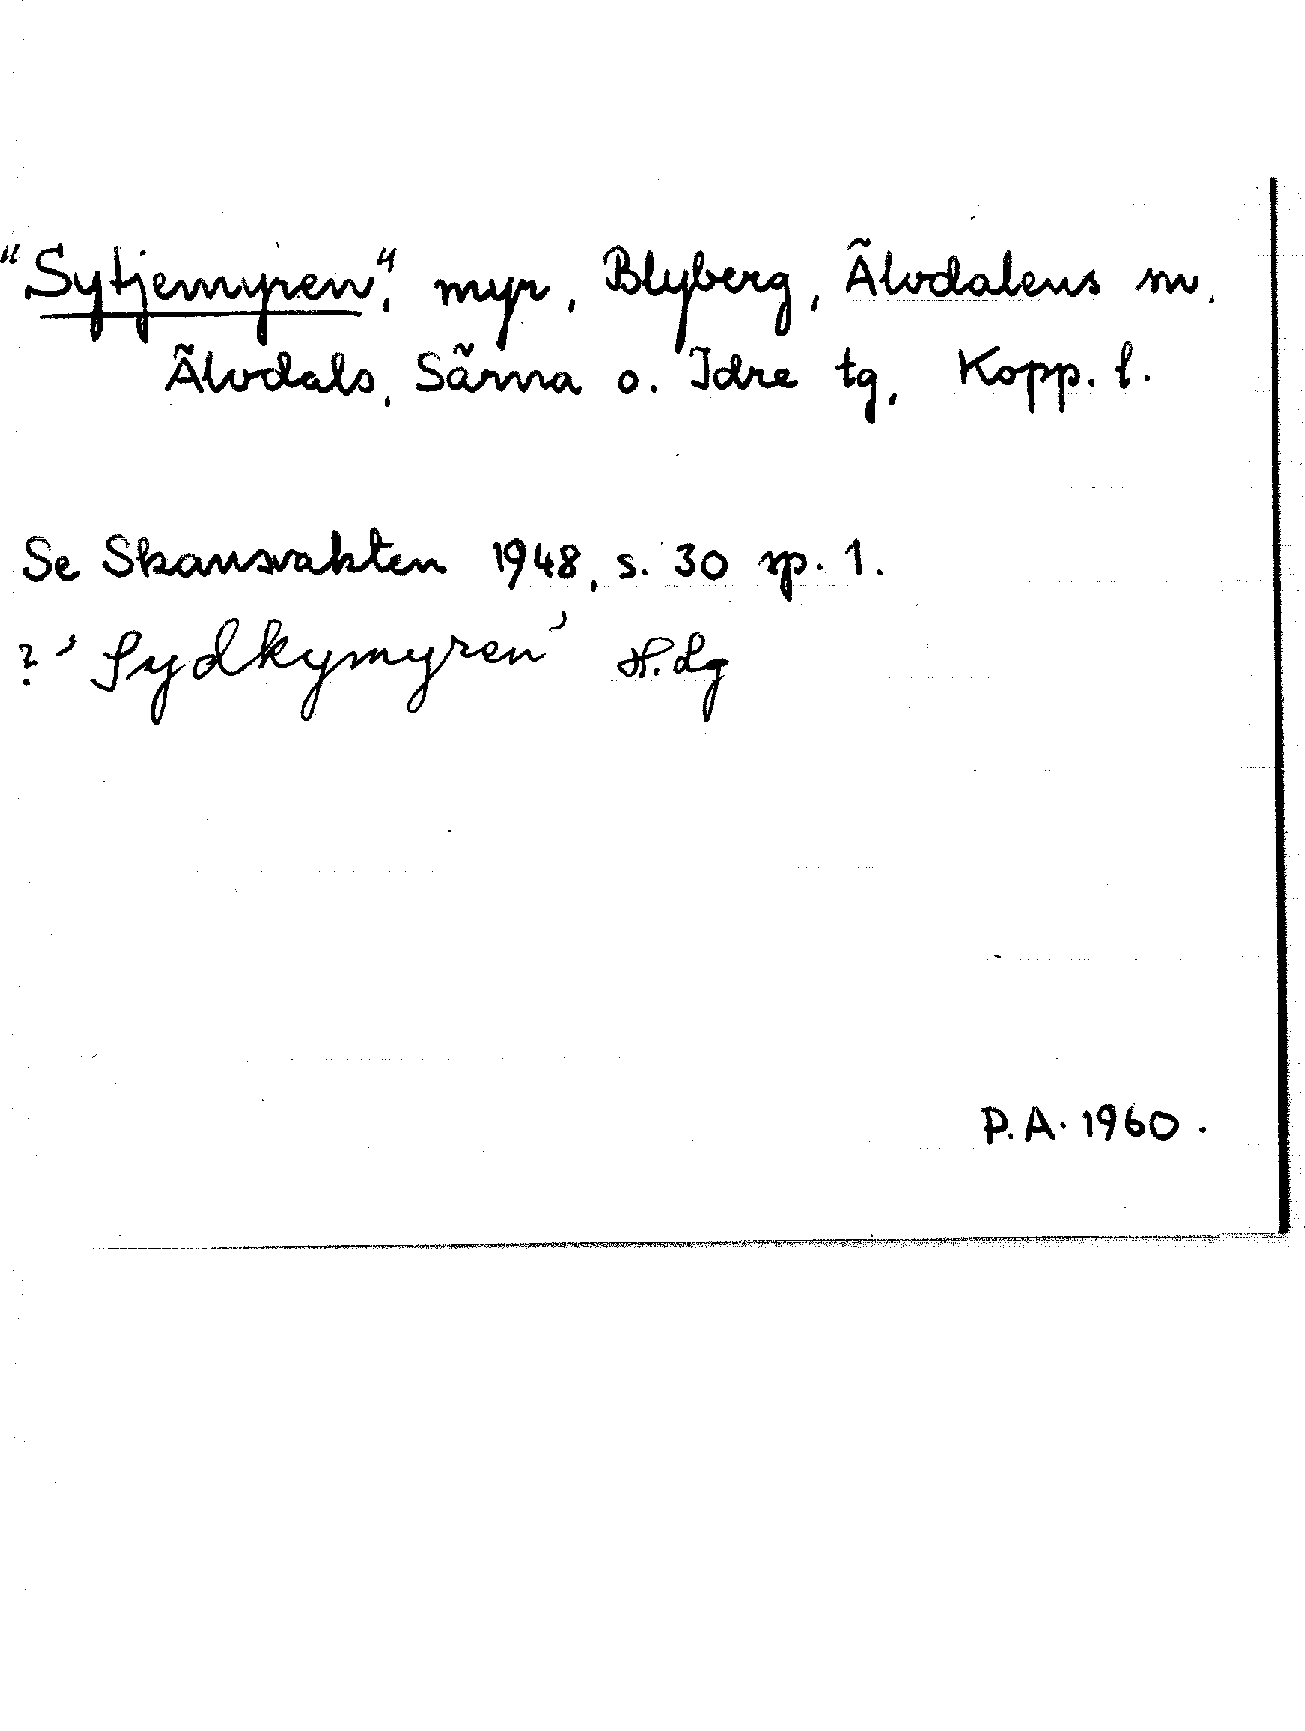 "Sytjemyren", myr, Blyberg, Älvdalens sn,
Älvdals, Särna o. Idre tg, Kopp. l.
Se Skansvakten 1948, s. 30 sp. 1.
? 'Sydkymyren' H. Lg
P.A. 1960.